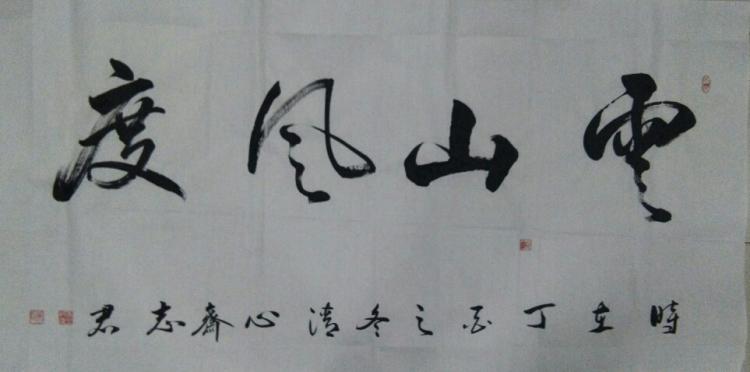 雲山風度
時在丁酉之冬清心齋志君